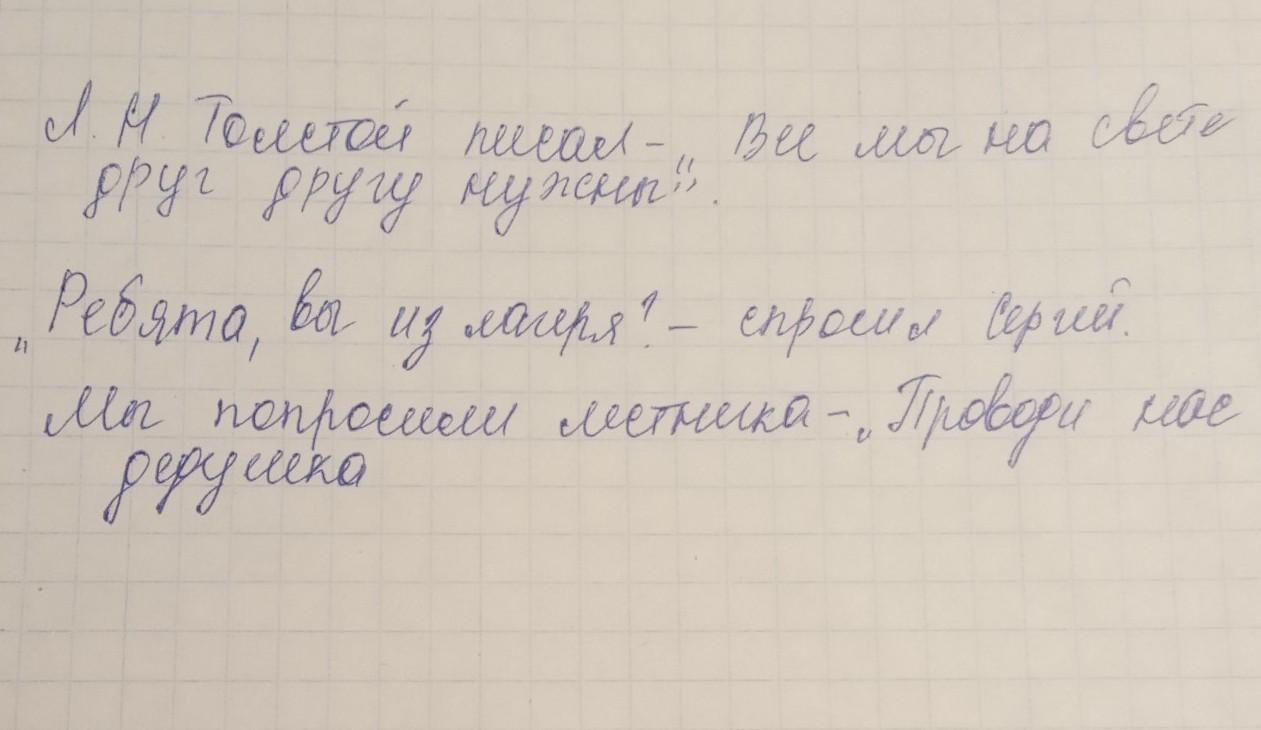 Л. Н. Толстой писал – „Все мы на свете
друг другу нужны“.
„Ребята, вы из лагеря? – спросил Сергий.
Мы попросили лестника – „Проводи нас
дедушка